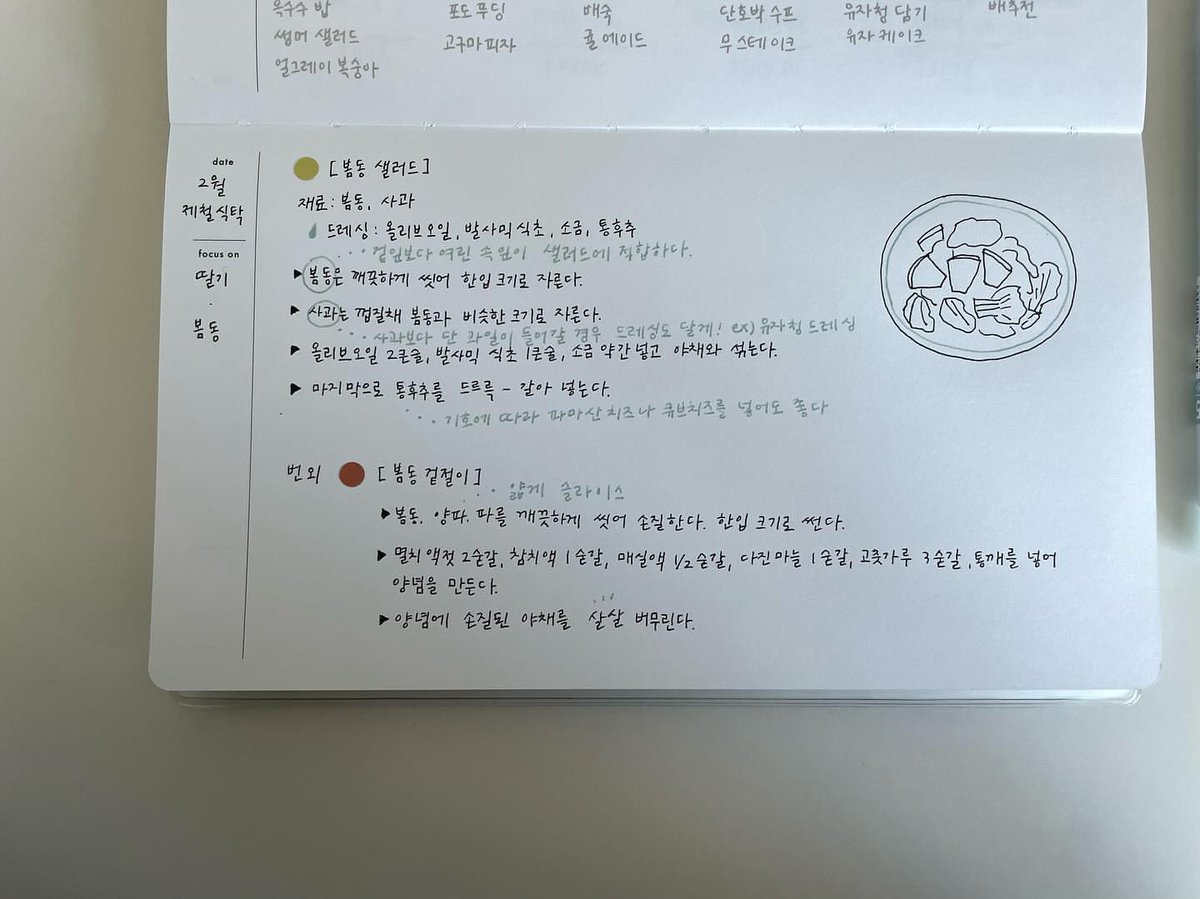 옥수수 밥 포도 푸딩 배숙 단호박 수프 유자청 담기 배추전
썸머 샐러드 고구마 피자 귤 에이드 무 스테이크 유자 케이크
얼그레이 복숭아
date
2월
제철식탁
focus on
딸기
·
봄동
[봄동 샐러드]
재료: 봄동, 사과
드레싱: 올리브오일, 발사믹 식초, 소금, 통후추
겉잎보다 여린 속잎이 샐러드에 적합하다.
▶ 봄동은 깨끗하게 씻어 한입 크기로 자른다.
▶ 사과는 껍질채 봄동과 비슷한 크기로 자른다.
사과보다 단 과일이 들어갈 경우 드레싱도 달게! ex) 유자청 드레싱
▶ 올리브오일 2큰술, 발사믹 식초 1큰술, 소금 약간 넣고 야채와 섞는다.
▶ 마지막으로 통후추를 드르륵 - 갈아 넣는다.
기호에 따라 파마산 치즈나 큐브치즈를 넣어도 좋다
번외 [봄동 겉절이]
얇게 슬라이스
▶ 봄동, 양파, 파를 깨끗하게 씻어 손질한다. 한입 크기로 썬다.
▶ 멸치액젓 2숟갈, 참치액 1숟갈, 매실액 1/2숟갈, 다진마늘 1숟갈, 고춧가루 3숟갈, 통깨를 넣어
양념을 만든다.
▶ 양념에 손질된 야채를 살살 버무린다.